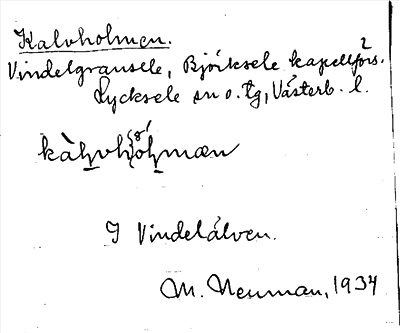 Kalvholmen.
Vindelgransele, Björksele kapellförs.
Lycksele sn o. tg, Västerb. l.
kàhvhöhmæn
I Vindelälven.
M. Neuman, 1934